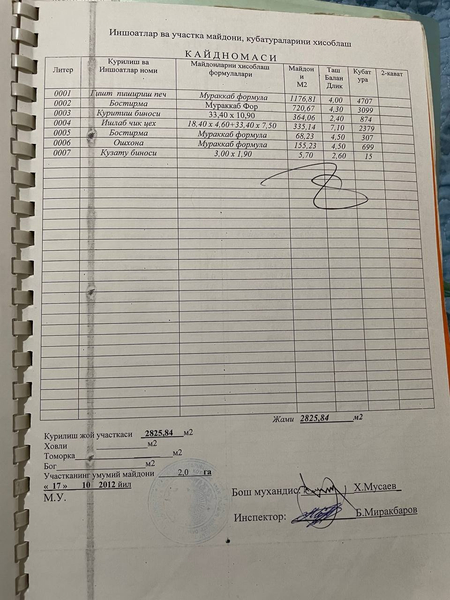 Иншоатлар ва участка майдони, кубатураларини хисоблаш
КАЙДНОМАСИ
Литер Курилиш ва Иншоатлар номи Майдонларни хисоблаш формулалари Майдон и М2 Таш Балан Длик Кубат ура 2-кават
0001 Гишт пишириш печ Мураккаб формула 1176,81 4,00 4707
0002 Бостирма Мураккаб Фор 720,67 4.30 3099
0003 Куритиш биноси 33,40 х 10,90 364,06 2,40 874
0004 Ишлаб чик цех 18,40 х 4,60+33,40 х 7,50 335,14 7,10 2379
0005 Бостирма Мураккаб формула 68,23 4,50 307
0006 Ошхона Мураккаб формула 155,23 4,50 699
0007 Кузату биноси 3,00 х 1,90 5,70 2,60 15
Жами 2825,84 м2
Курилиш жой участкаси 2825,84 м2
Ховли м2
Томорка м2
Бог м2
Участканинг умумий майдони 2,0 га
« 17 » 10 2012 йил
М.У.
Бош мухандис Х.Мусаев
Инспектор: Б.Миракбаров